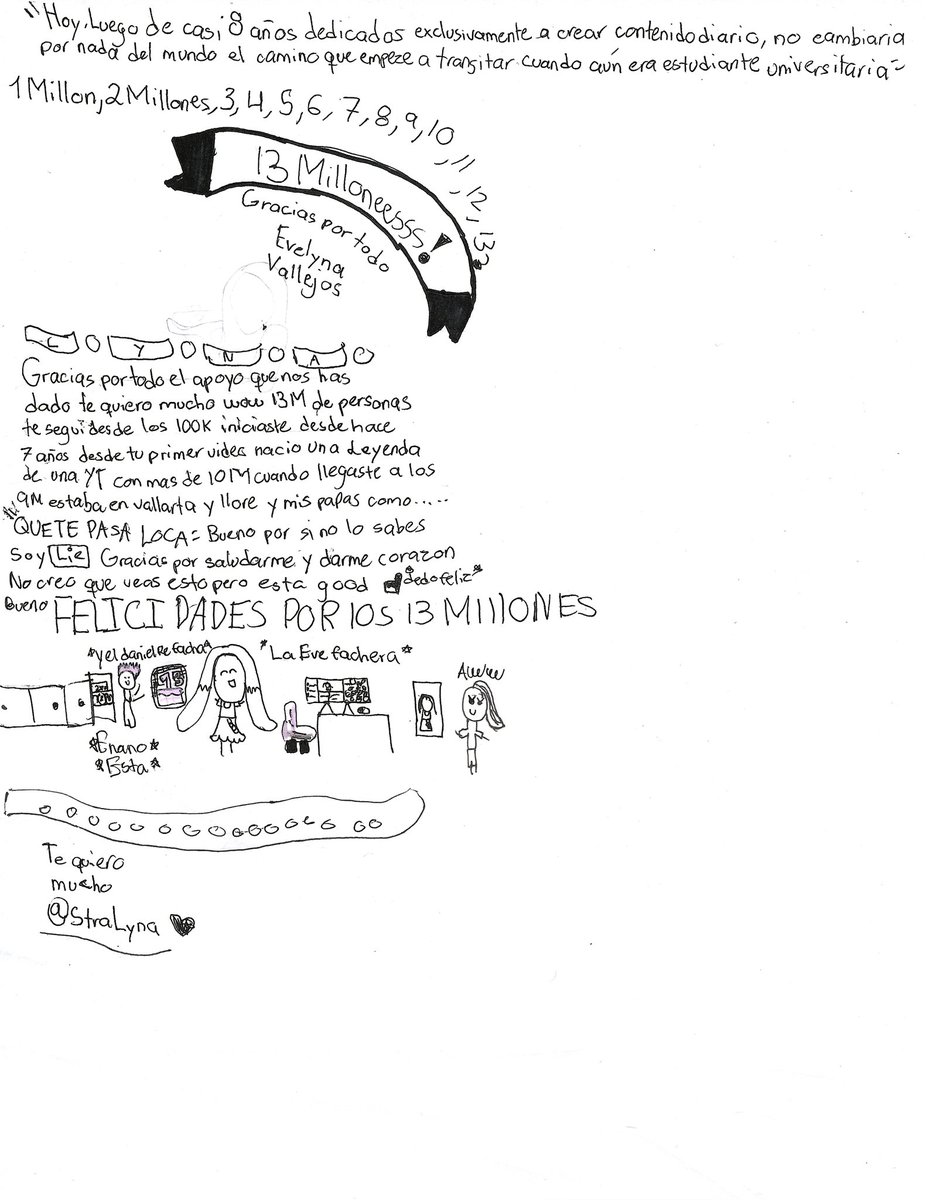 "Hoy, Luego de casi 8 años dedicados exclusivamente a crear contenido diario, no cambiaria
por nada del mundo el camino que empeze a transitar cuando aún era estudiante universitaria-
1 Millon, 2 Millones, 3, 4, 5, 6, 7, 8, 9, 10, 11, 12, 13
13 Milloneesss!
Gracias por todo
Evelyna
Vallejos
L Y N A
Gracias por todo el apoyo que nos has
dado te quiero mucho wow 13M de personas
te segui desde los 100K iniciaste desde hace
7 años desde tu primer video nacio una Leyenda
de una YT con mas de 10M cuando llegaste a los
9M estaba en vallarta y llore y mis papas como.....
QUETE PASA LOCA= Bueno por si no lo sabes
Soy Lie Gracias por saludarme y darme corazon
No creo que veas esto pero esta good *dedofeliz*
Bueno FELICIDADES POR lOS 13 MIllONES
*La Eve fachera*
*Enano*
*Esta*
Te quiero
mucho
@StraLyna